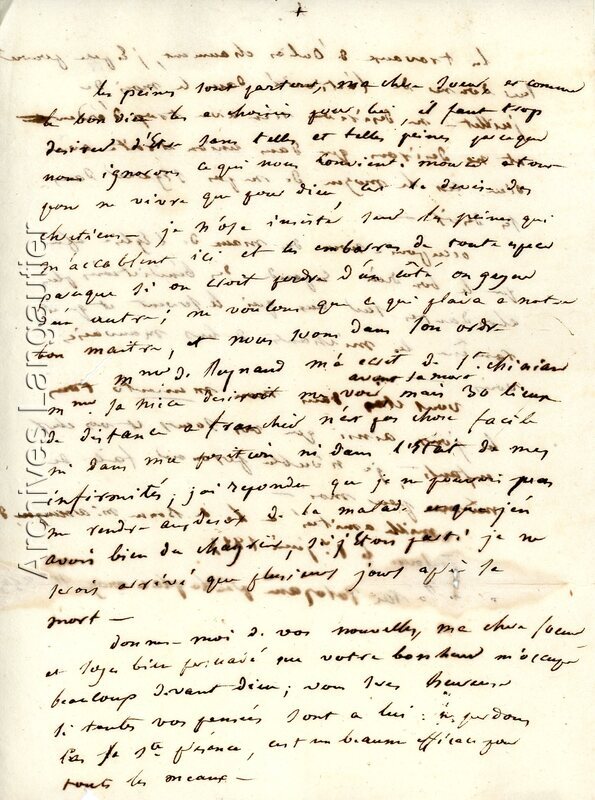 +
les peines sont partout, ma chere soeur, et comme
le bon dieu les a choisis pour lui, il faut trop
desirer d'Etre dans telles et telles peines parceque
nous ignorons ce qui nous convient. mourir a tour
pour ne vivre que pour dieu est la devise des
chretiens — je n'ose insisté sur les peines qui
m'accablent ici et les embarras de toute espece
parceque si on croit perdre d'un côté on gagne
d'un autre; ne voulons que ce qui plaira a notre
bon maitre, et nous serons dans son ordre
mme de Reynaud m'a ecrit de st. chinian
avant sa mort
mme sa niece desiroit me voir mais 30 lieux
de distance a franchir n'est pas chose facile
ni dans ma position ni dans l'Etat de mes
infirmités, j'ai repondu que je ne pouvois pas
me rendre au desir de la malade et que j'en
avois bien du chagrin, si j'Etois parti je ne
serois arrivé que plusieurs jours après sa
mort —
donnes-moi de vos nouvelles, ma chere soeur
et soyez bien persuadé que votre bonheur m'occupe
beaucoup devant dieu; vous sres heureuse
si toutes vos pensées sont a lui: ne perdons
pas sa ste présence, c'est un beaume efficace pour
touts les meaux —
Archives Langautier